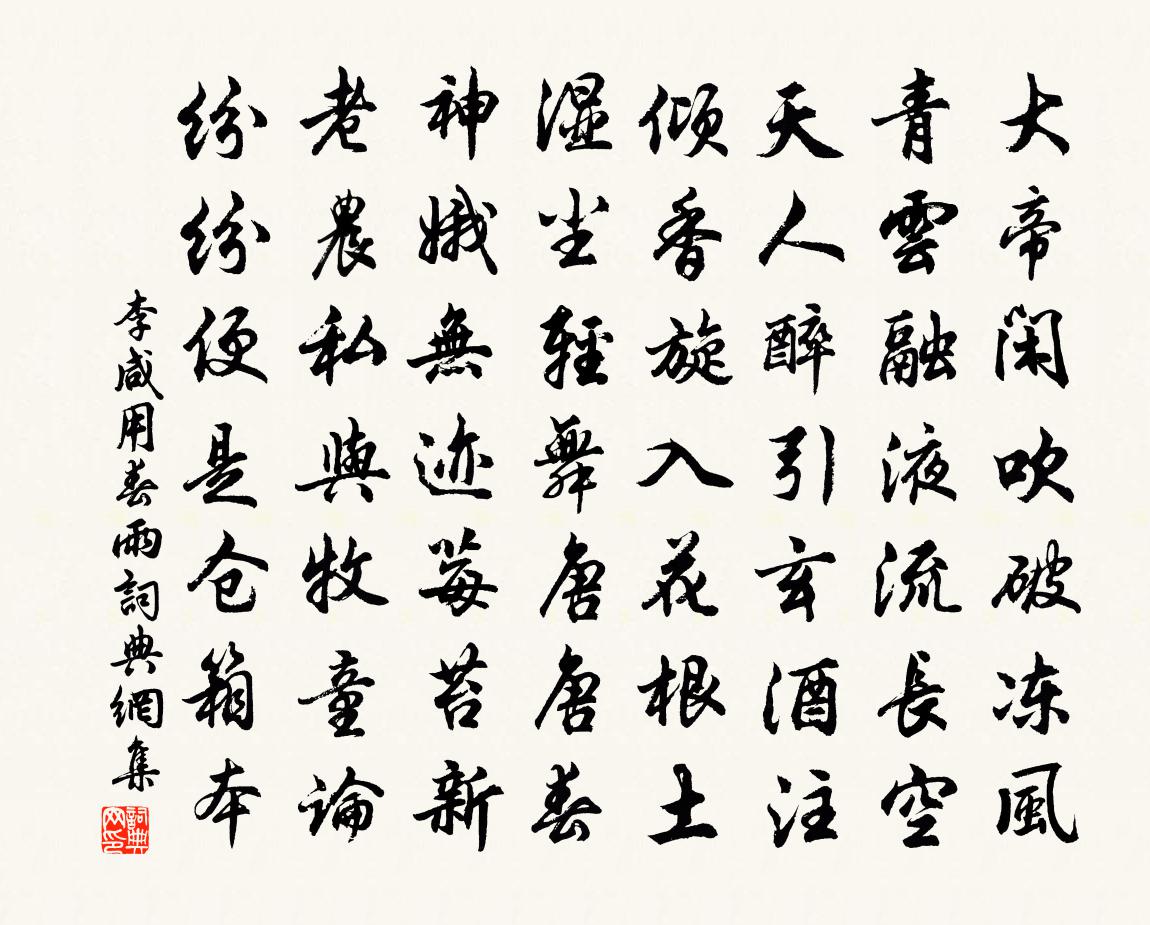 大帝闲吹破冻風
青雲融液流長空
天人醉引玄酒注
倾香旋入花根土
湿尘輕舞唐唐春
神娥無迹莓苔新
老農私與牧童論
纷纷便是仓箱本
李咸用春雨詞典網集
詞典网印